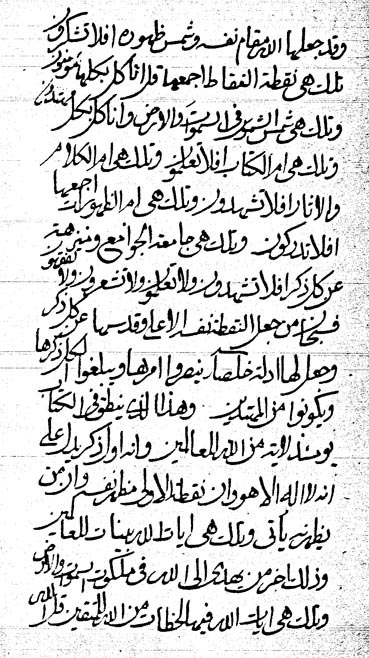 وقد جعلها الله مقام نفسه وشمس ظهوره افلا تشكرون
تلك هى نقطة النقاط اجمعها قل انا كل بكلها مؤمنون
وتلك هى شمس الشموس فى السموات والارض وانا كل بكل
وتلك هى ام الكتاب افلا تعلمون وتلك هى ام الكلام
والاثار افلا تشهدون وتلك هى ام الظهورات اجمعها
افلا تدركون وتلك هى جامعة الجوامع ومنزهة
عن كل ذكر افلا تشهدون ولا تعلمون ولا تشعرون ولا تفقهون
فسبحان من جعل النقطة نفسه الاعلى وقدسها عن كل ذكر
وجعل لها ادلاء خلصاء لينصروا امرها ويبلغوا الكل ذكرها
ويكونوا من المهتدين وهذا الذى ينطق فى الكتاب
يومئذ لاية من الله للعالمين وانه اول ذكر يدل على
انه لا اله الا هو وان نقطة الاولى مظهر نفسه وان من
يظهره ياتى وتلك هى ايات الله بينات للعالمين
وذلك اخر من يهدى الى الله فى ملكوت السموات والارض
وتلك هى ايات الله فيها من الله للمتقين قل الله